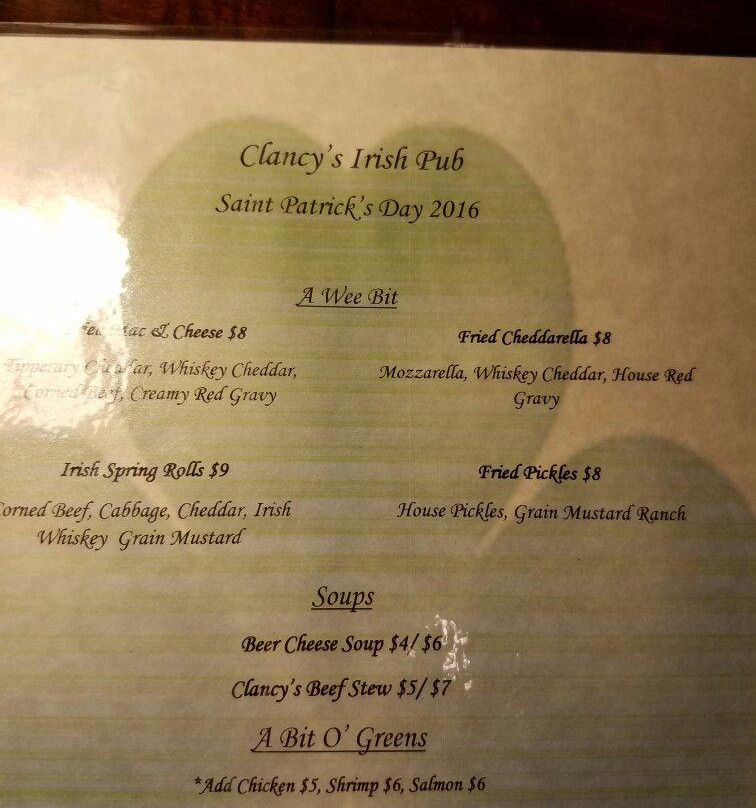 Clancy's Irish Pub
Saint Patrick's Day 2016
A Wee Bit
Mac & Cheese $8
Tipperary Cheddar, Whiskey Cheddar,
Corned Beef, Creamy Red Gravy
Fried Cheddarella $8
Mozzarella, Whiskey Cheddar, House Red
Gravy
Irish Spring Rolls $9
Corned Beef, Cabbage, Cheddar, Irish
Whiskey Grain Mustard
Fried Pickles $8
House Pickles, Grain Mustard Ranch
Soups
Beer Cheese Soup $4/ $6
Clancy's Beef Stew $5/ $7
A Bit O' Greens
*Add Chicken $5, Shrimp $6, Salmon $6